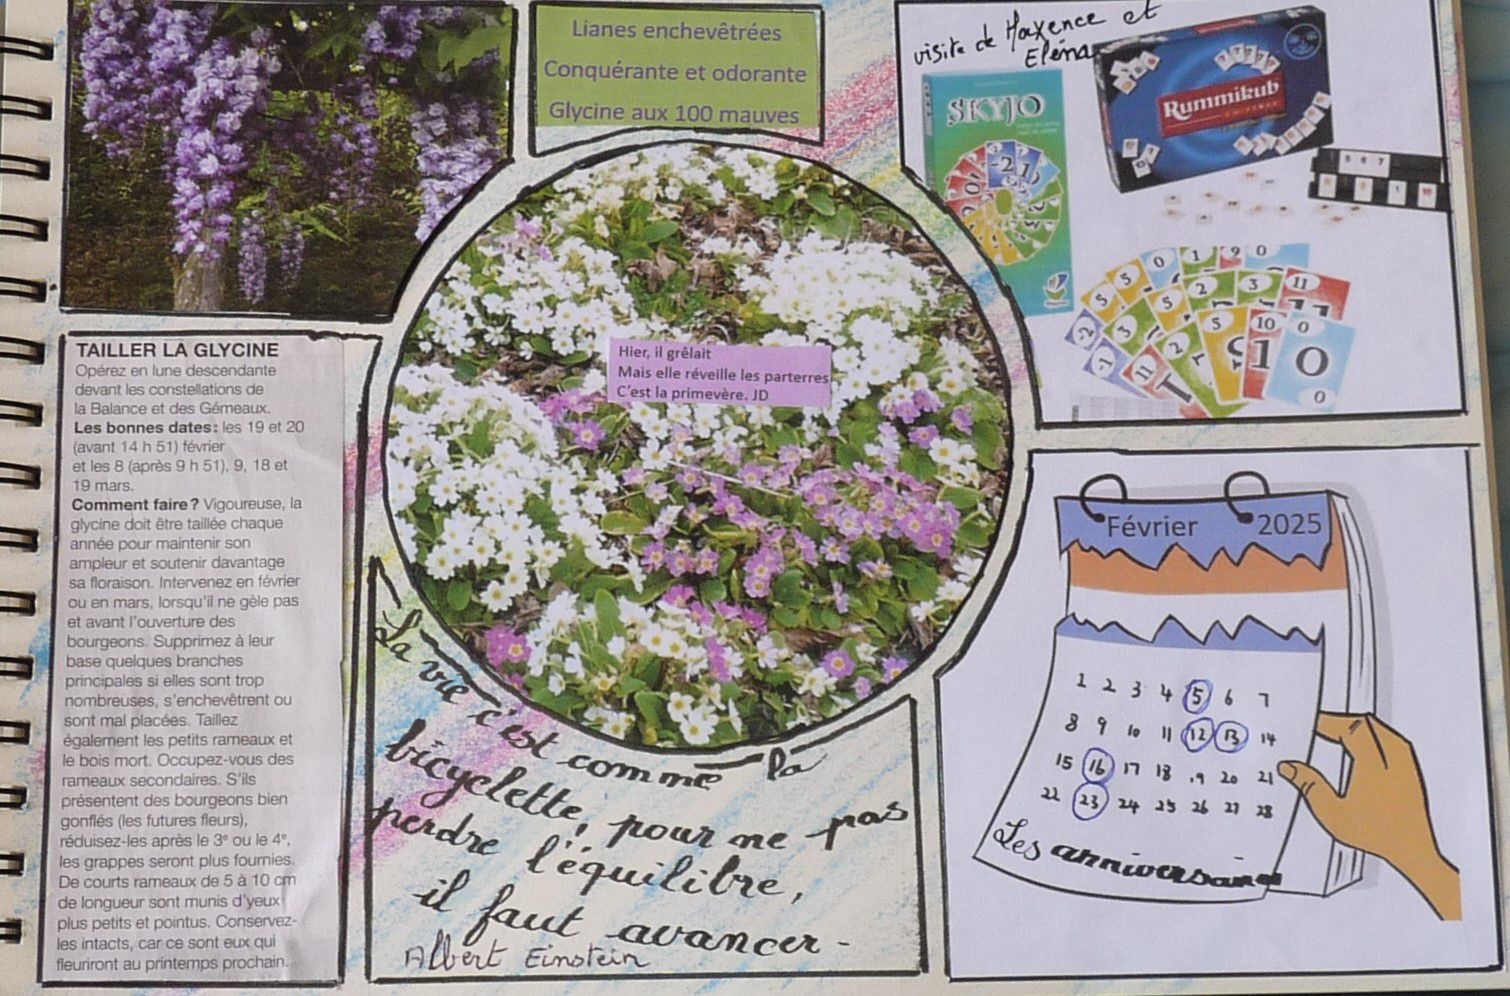 Lianes enchevêtrées
Conquérante et odorante
Glycine aux 100 mauves
visite de Maxence et
Eléna
SKYJO
Rummikub
Hier, il grêlait
Mais elle réveille les parterres
C'est la primevère. JD
TAILLER LA GLYCINE
Opérez en lune descendante
devant les constellations de
la Balance et des Gémeaux.
Les bonnes dates : les 19 et 20
(avant 14 h 51) février
et les 8 (après 9 h 51), 9, 18 et
19 mars.
Comment faire ? Vigoureuse, la
glycine doit être taillée chaque
année pour maintenir son
ampleur et soutenir davantage
sa floraison. Intervenez en février
ou en mars, lorsqu'il ne gèle pas
et avant l'ouverture des
bourgeons. Supprimez à leur
base quelques branches
principales si elles sont trop
nombreuses, s'enchevêtrent ou
sont mal placées. Taillez
également les petits rameaux et
le bois mort. Occupez-vous des
rameaux secondaires. S'ils
présentent des bourgeons bien
gonflés (les futures fleurs),
réduisez-les après le 3e ou le 4e,
les grappes seront plus fournies.
De courts rameaux de 5 à 10 cm
de longueur sont munis d'yeux
plus petits et pointus. Conservez-
les intacts, car ce sont eux qui
fleuriront au printemps prochain.
La vie c'est comme la
bicyclette, pour ne pas
perdre l'équilibre,
il faut avancer-
Albert Einstein
Février 2025
1 2 3 4 5 6 7
8 9 10 11 12 13 14
15 16 17 18 19 20 21
22 23 24 25 26 27 28
Les anniversaires